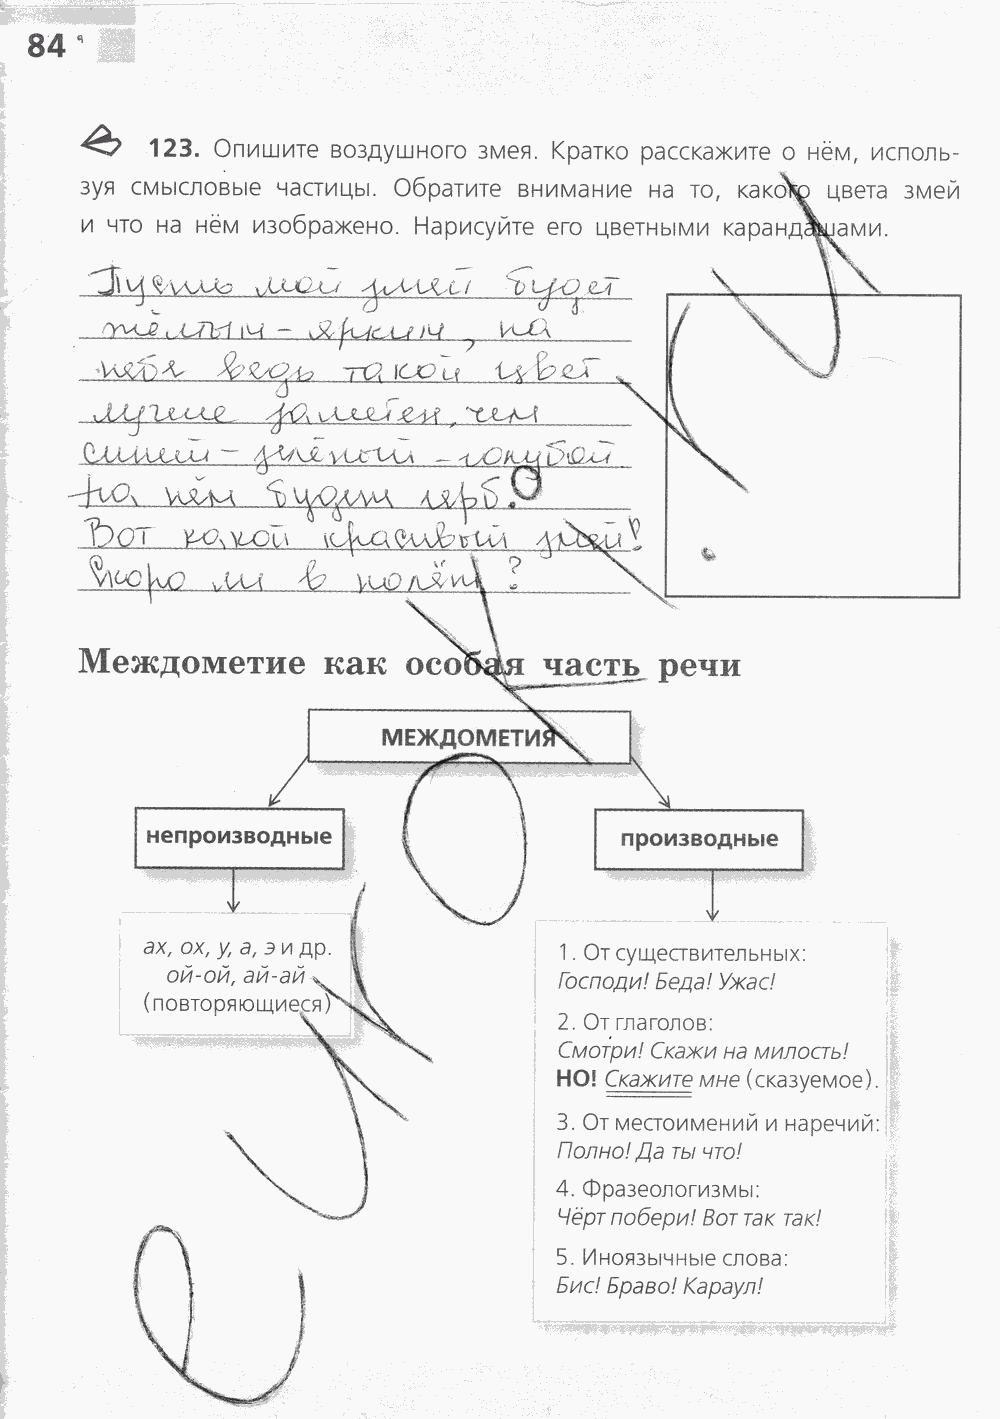 84
123. Опишите воздушного змея. Кратко расскажите о нём, исполь-
зуя смысловые частицы. Обратите внимание на то, какого цвета змей
и что на нём изображено. Нарисуйте его цветными карандашами.
Пусть мой змей будет
жёлтым - ярким, на
небе ведь такой цвет
лучше заметен, чем
синий - зелёный - голубой
На нём будет герб.
Вот какой красивый змей!
Скоро ли в полёт?
Междометие как особая часть речи
МЕЖДОМЕТИЯ
непроизводные
производные
ах, ох, у, а, э и др.
ой-ой, ай-ай
(повторяющиеся)
1. От существительных:
Господи! Беда! Ужас!
2. От глаголов:
Смотри! Скажи на милость!
НО! Скажите мне (сказуемое).
3. От местоимений и наречий:
Полно! Да ты что!
4. Фразеологизмы:
Чёрт побери! Вот так так!
5. Иноязычные слова:
Бис! Браво! Караул!